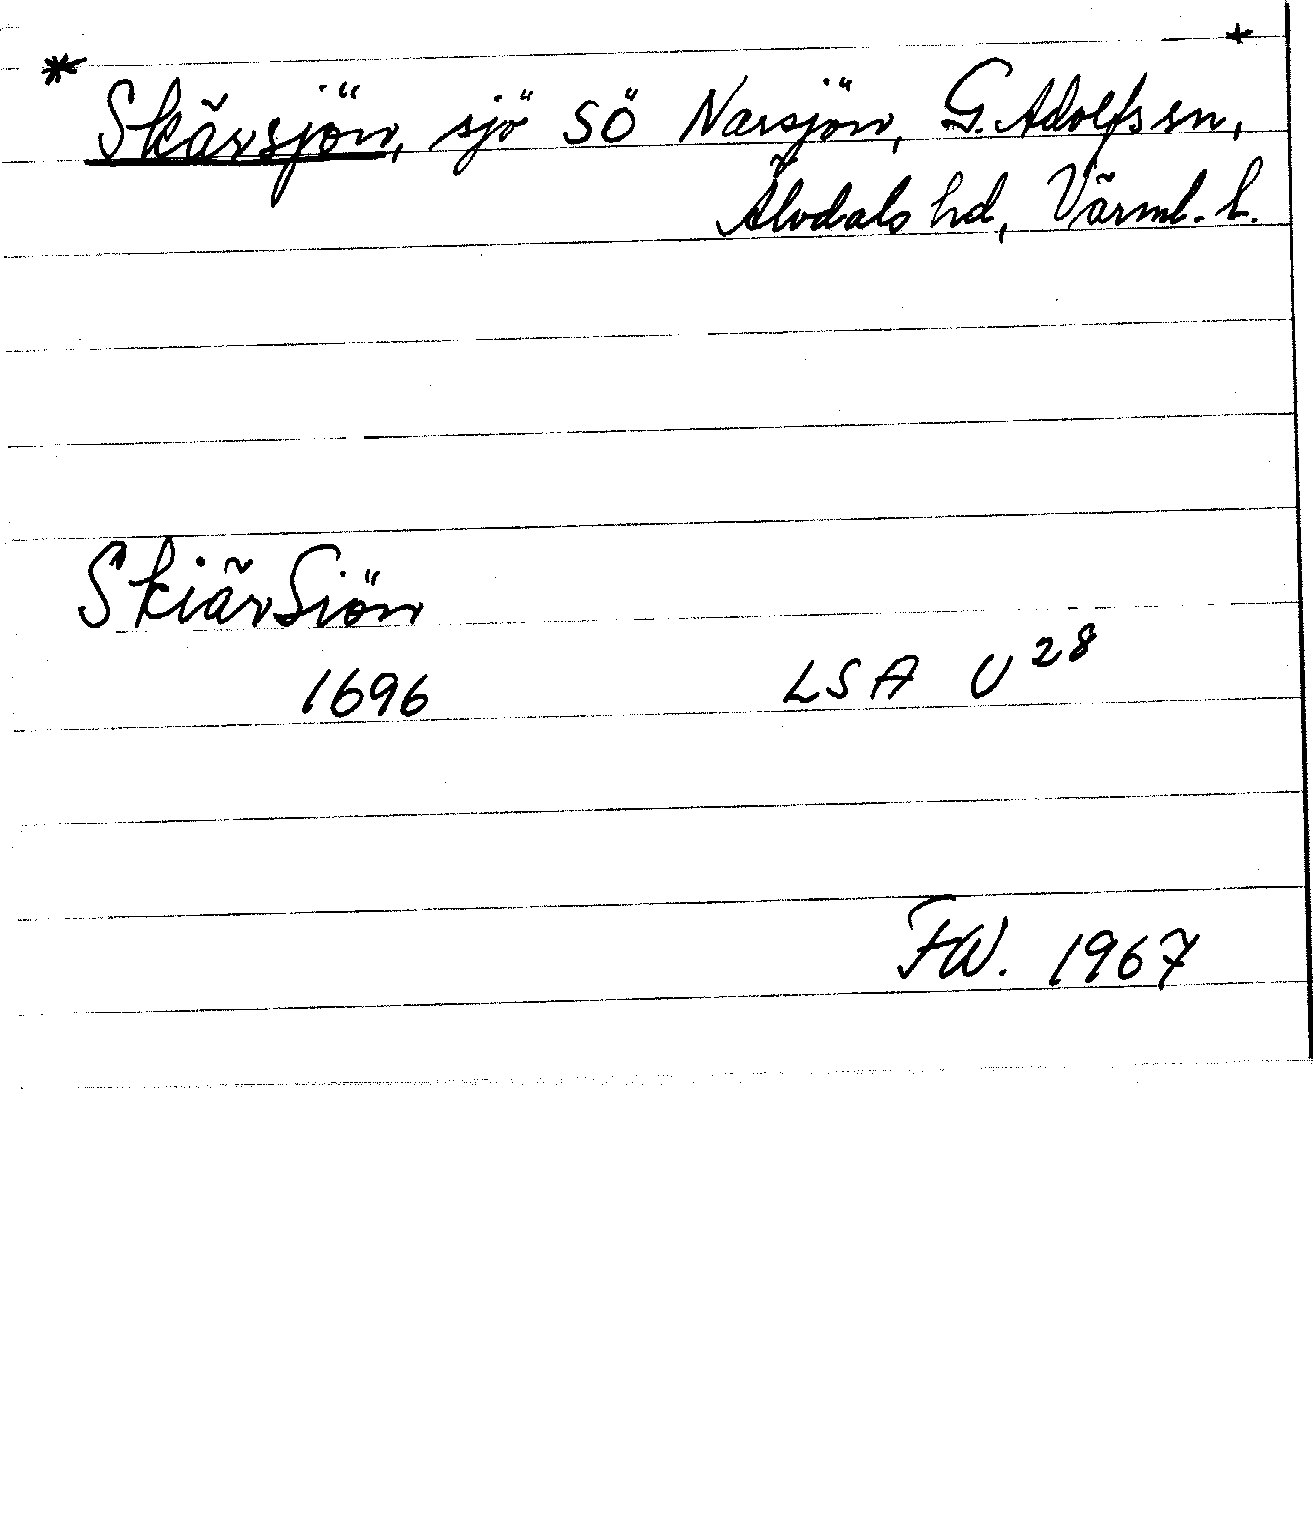 * Skärsjön, sjö SÖ Narsjön, G. Adolfs sn, +
Älvdals hd, Värml. l.
SkiärSiön
1696 LSA U 28
FW. 1967